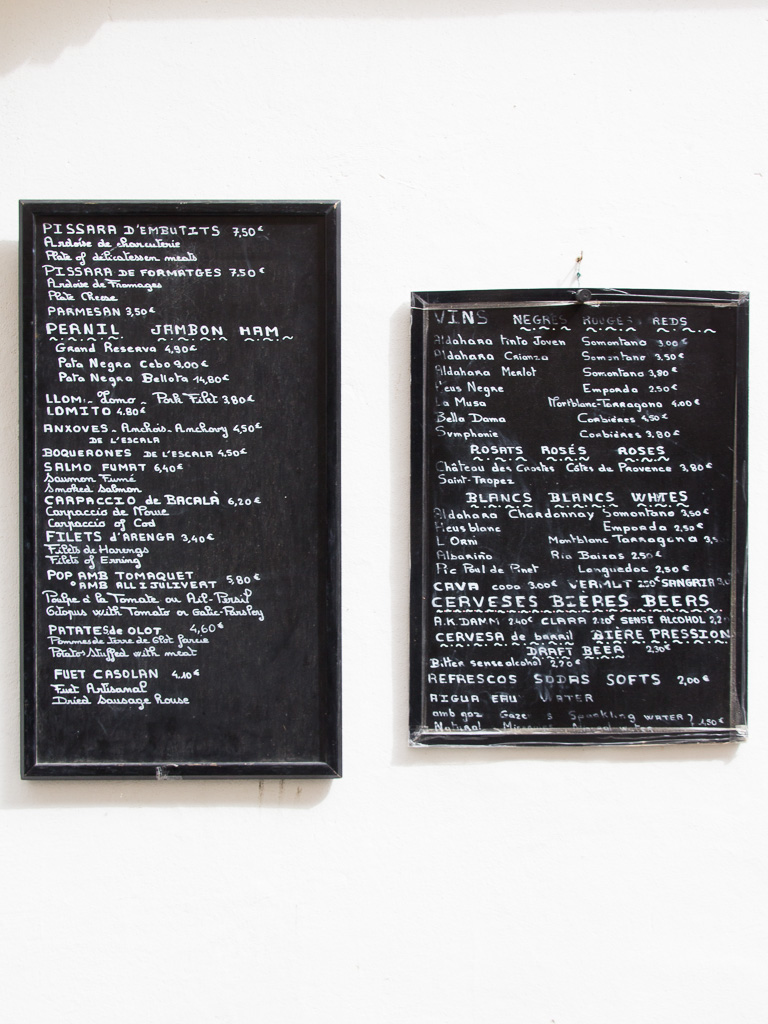 PISSARA D'EMBUTITS 7,50€
Ardoise de charcuterie
Plate of delicatessen meats
PISSARA DE FORMATGES 7,50€
Ardoise de Fromages
Plate Cheese
PARMESAN 3,50€
PERNIL JAMBON HAM
Grand Reserva 4,90€
Pata Negra Cebo 9,00€
Pata Negra Bellota 14,80€
LLOM - Lomo - Pork Filet 3,80€
LOMITO 4.80€
ANXOVES - Anchois - Anchovy 4,50€
DE L'ESCALA
BOQUERONES DE L'ESCALA 4,50€
SALMO FUMAT 6,40€
Saumon Fumé
Smoked Salmon
CARPACCIO de BACALÀ 6,20€
Carpaccio de Morue
Carpaccio of Cod
FILETS d'ARENGA 3,40€
Filets de Harengs
Filets of Erning
POP AMB TOMAQUET
o AMB ALL I JULIVERT 5,80€
Poulpe à la Tomate ou Ail-Persil
Octopus with Tomato or Galic-Parsley
PATATES de OLOT 4,60€
Pommes de Terre de Olot farcie
Potatos Stuffed with meat
FUET CASOLAN 4.10€
Fuet Artisanal
Dried Sausage House
VINS NEGRES ROUGES REDS
Aldahara tinto Joven Somontano 3,00€
Aldahara Crianza Somontano 3,50€
Aldahara Merlot Somontano 3,80€
Peus Negre Emporda 2.50€
La Musa Montblanc-Tarragona 4.00€
Bella Dama Corbières 4,50€
Symphonie Corbières 3,80€
ROSATS ROSÉS ROSES
Château des Crostes Côtes de Provence 3,80€
Saint-Tropez
BLANCS BLANCS WHITES
Aldahara Chardonnay Somontano 3,50€
Peus blanc Emporda 2,50€
L'Orni Montblanc Tarragona 3,
Albariño Ria Baixas 2,50€
Pic Poul de Pinet Languedoc 2,50€
CAVA copa 3.00€ VERMUT 2,50€ SANGRIA
CERVESES BIÈRES BEERS
A.K. DAMM 2,40€ CLARA 2.10€ SENSE ALCOHOL 2,2
CERVESA de barril BIÈRE PRESSION
DRAFT BEER 2,30€
Bitter sense alcohol 2,20€
REFRESCOS SODAS SOFTS 2,00€
AIGUA EAU WATER
amb gaz Gaze Sparkling WATER 1,50€
Natural